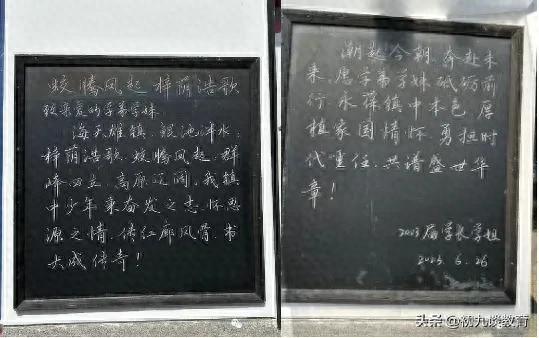 蛟腾凤起 梓荫浩歌
致亲爱的学弟学妹
海天雄镇,鲲池泮水;
梓荫浩歌,蛟腾凤起,群
峰四立,高原辽阔,我镇
中少年乘奋发之志,怀思
源之情,传红廊风骨,书
大成传奇!
潮起今朝,奔赴未
来,愿学弟学妹砥砺前
行,永葆镇中本色,厚
植家国情怀,勇担时
代重任,共谱盛世华
章!
2023届学长学姐
2023.6.26
头条@沈九谈教育